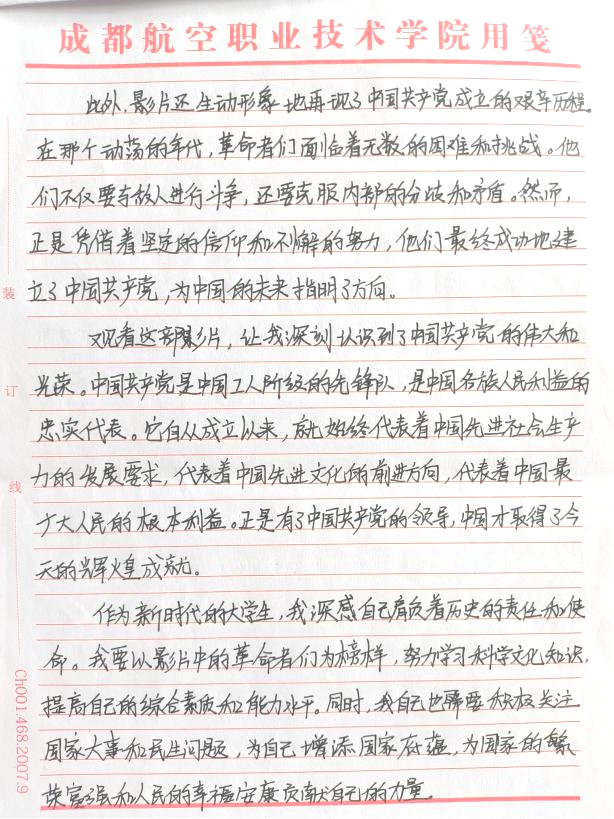 成都航空职业技术学院用笺
此外,影片还生动形象地再现了中国共产党成立的艰辛历程。
在那个动荡的年代,革命者们面临着无数的困难和挑战。他
们不仅要与敌人进行斗争,还要克服内部的分歧和矛盾。然而,
正是凭借着坚定的信仰和不懈的努力,他们最终成功地建
立了中国共产党,为中国的未来指明了方向。
观看这部影片,让我深刻认识到了中国共产党的伟大和
光荣。中国共产党是中国工人阶级的先锋队,是中国各族人民利益的
忠实代表。它自从成立以来,就始终代表着中国先进社会生产
力的发展要求,代表着中国先进文化的前进方向,代表着中国最
广大人民的根本利益。正是有了中国共产党的领导,中国才取得了今
天的辉煌成就。
作为新时代的大学生,我深感自己肩负着历史的责任和使
命。我要以影片中的革命者们为榜样,努力学习科学文化知识,
提高自己的综合素质和能力水平。同时,我自己也需要积极关注
国家大事和民生问题,为自己增添国家底蕴,为国家的繁
荣富强和人民的幸福安康贡献自己的力量。
装
订
线
Ch001·468·2007.9